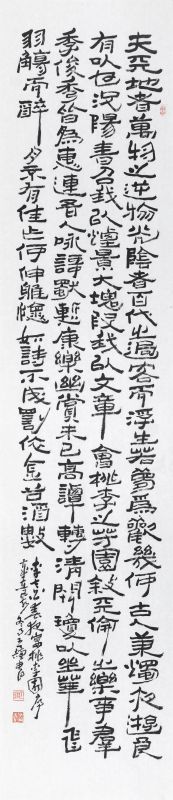 夫天地者萬物之逆物光陰者百代之過客而浮生若夢為歡幾何古人秉燭夜遊良
有以也況陽春召我以煙景大塊假我以文章會桃李之芳園敘天倫之樂事羣
季俊秀皆為惠連吾人詠謌獨慙康樂幽賞未已高譚轉清開瓊以坐華飛
羽觴而醉月不有佳作何伸雅懷如詩不成罰依金谷酒數
李太白春夜宴桃李園序